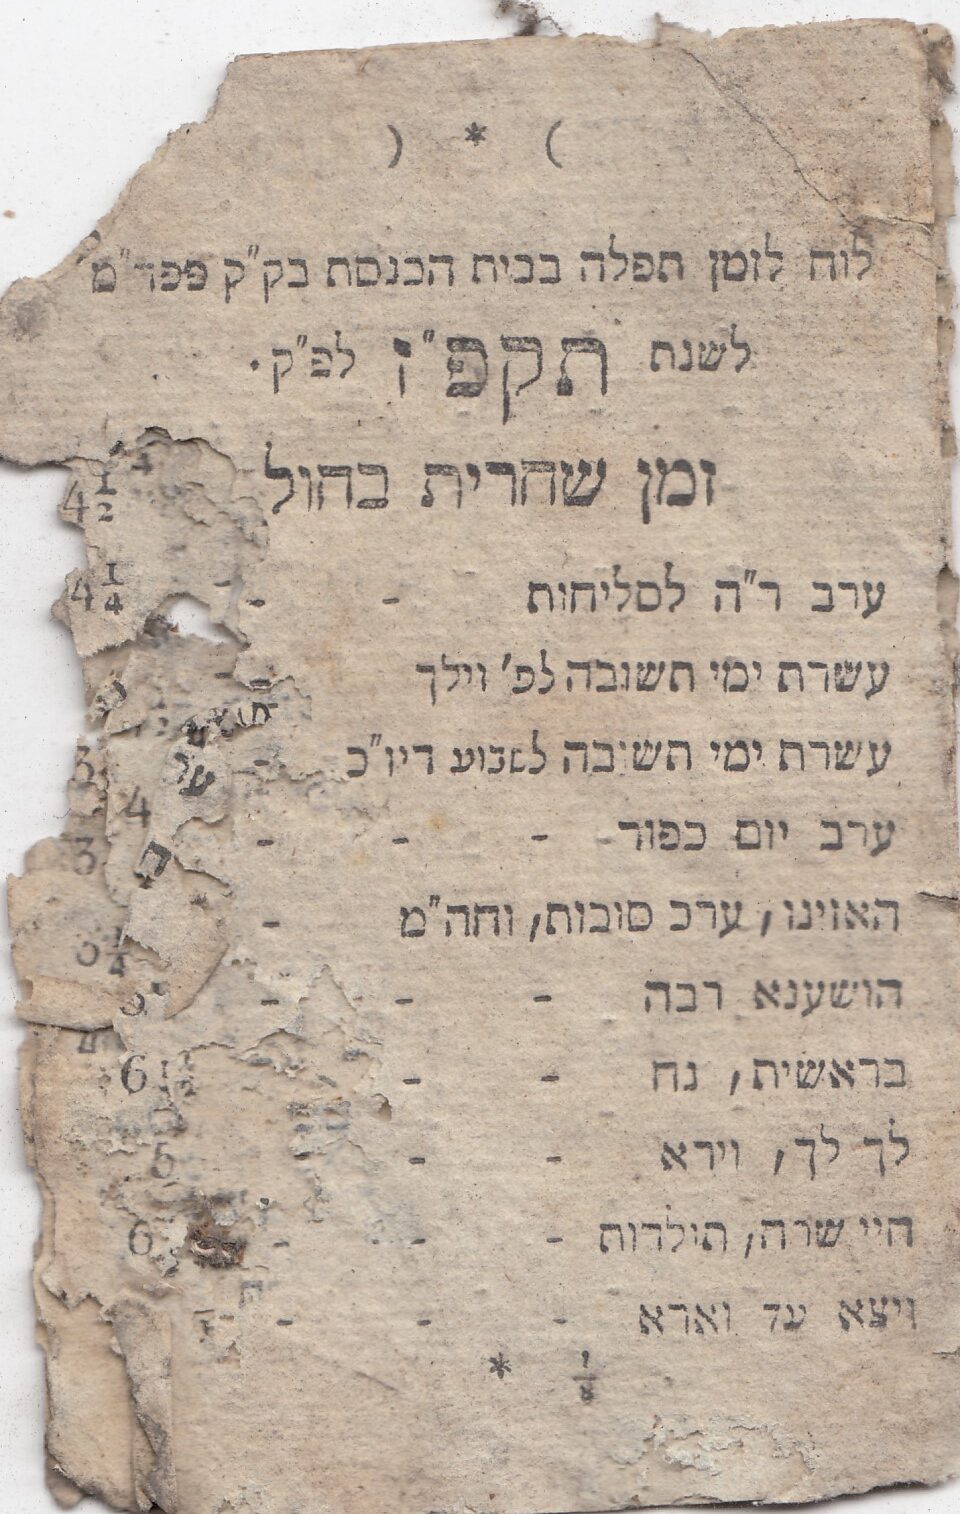 ( * )
לוח לזמן תפלה בבית הכנסת בק"ק פפד"מ
לשנת תקפ"ו לפ"ק.
זמן שחרית בחול
4 1/2
ערב ר"ה לסליחות - - 4 1/4
עשרת ימי תשובה לפ' וילך -
עשרת ימי תשובה לשבוע דיו"כ - 3
4
ערב יום כפור - - - 3
האזינו, ערב סוכות, וחה"מ - 6 1/4
הושענא רבה - - -
בראשית, נח - - 6 1/2
לך לך, וירא - - 5
חיי שרה, תולדות - - - 6
ויצא עד וארא - - -
* 1/8